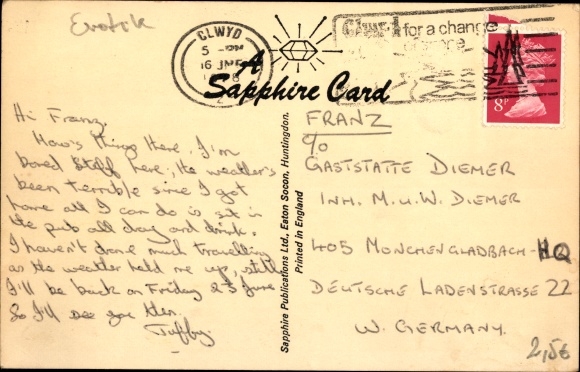 Erotik
CLWYD
5 - PM
16 JNE
for a change
A
Sapphire Card
8P
Hi Franz.
How's things Here. I'm
bored stiff here, the weather's
been terrible since I got
home all I can do is sit in
the pub all day and drink.
I haven't done much travelling
as the weather held me up, still
I'll be back on Friday 23 June
So I'll see you then.
Taffy.
Sapphire Publications Ltd., Eaton Socon, Huntingdon.
Printed in England
FRANZ
c/o
GASTSTATTE DIEMER
INH. M.U.W. DIEMER
405 MONCHENGLADBACH-HQ
DEUTSCHE LADENSTRASSE 22
W. GERMANY.
2,50